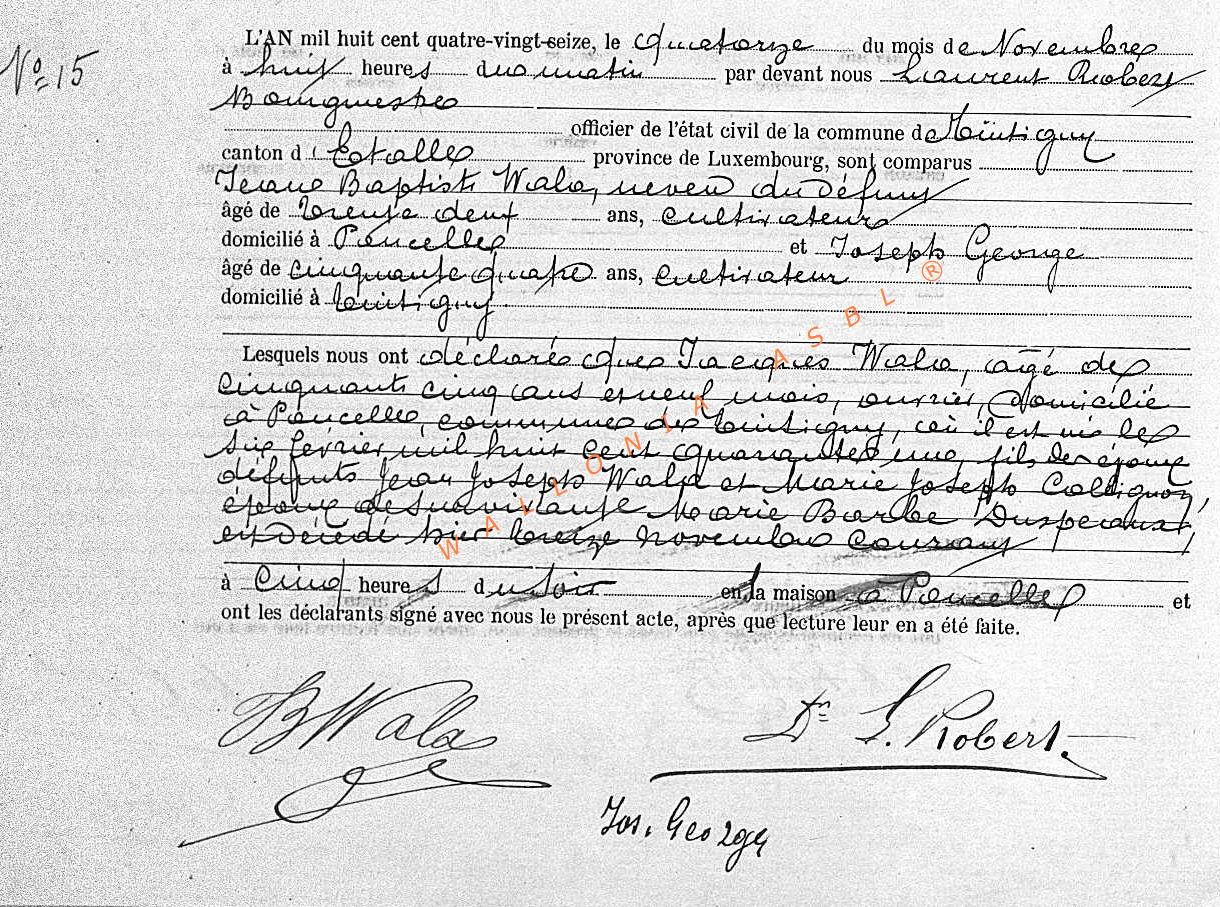 N° 15
L'AN mil huit cent quatre-vingt-seize, le quatorze du mois de Novembre
à huit heures du matin par devant nous Laurent Robert
Bourgmestre
officier de l'état civil de la commune de Tintigny
canton d'Etalle province de Luxembourg, sont comparus
Jean Baptiste Wala, neveu du défunt
âgé de trente deux ans, cultivateur
domicilié à Poncelle et Joseph George
âgé de cinquante quatre ans, cultivateur
domicilié à Tintigny
Lesquels nous ont déclaré que Jacques Wala, agé de
cinquante cinq ans et neuf mois, ouvrier, domicilié
à Poncelle, commune de Tintigny, où il est né le
six février mil huit cent quarante un, fils des époux
défunts Jean Joseph Wala et Marie Joseph Collignon,
époux de survivante Marie Barbe
est décédé hier treize novembre courant
à cinq heures du soir en la maison à Poncelle et
ont les déclarants signé avec nous le présent acte, après que lecture leur en a été faite.
WALLONIA ASBL ®
JB Wala
Dr L. Robert.
Jos. George